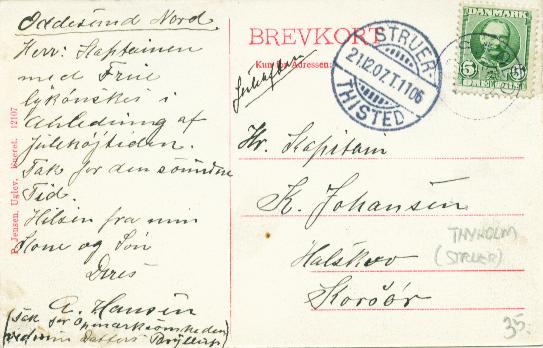 Oddesund Nord
Herr: Kaptainen
med Frue
lykönskes i
Anledning af
julehöjtiden.
Tak for den svundne
Tid.
Hilsen fra min
Kone og Sön
Deres
A. Hansen
(Tak for Opmærksomheden
ved min Datters Bryllup)
P. Jensen, Uglev. Eneret. 12107
BREVKORT
Kun til Adressen:
STRUER-
21.12.07.T.1106
THISTED
DANMARK
5 5
Hr. Kapitain
K. Johansen
Halskov
Korsör
THYHOLM
(STRUER)
35.